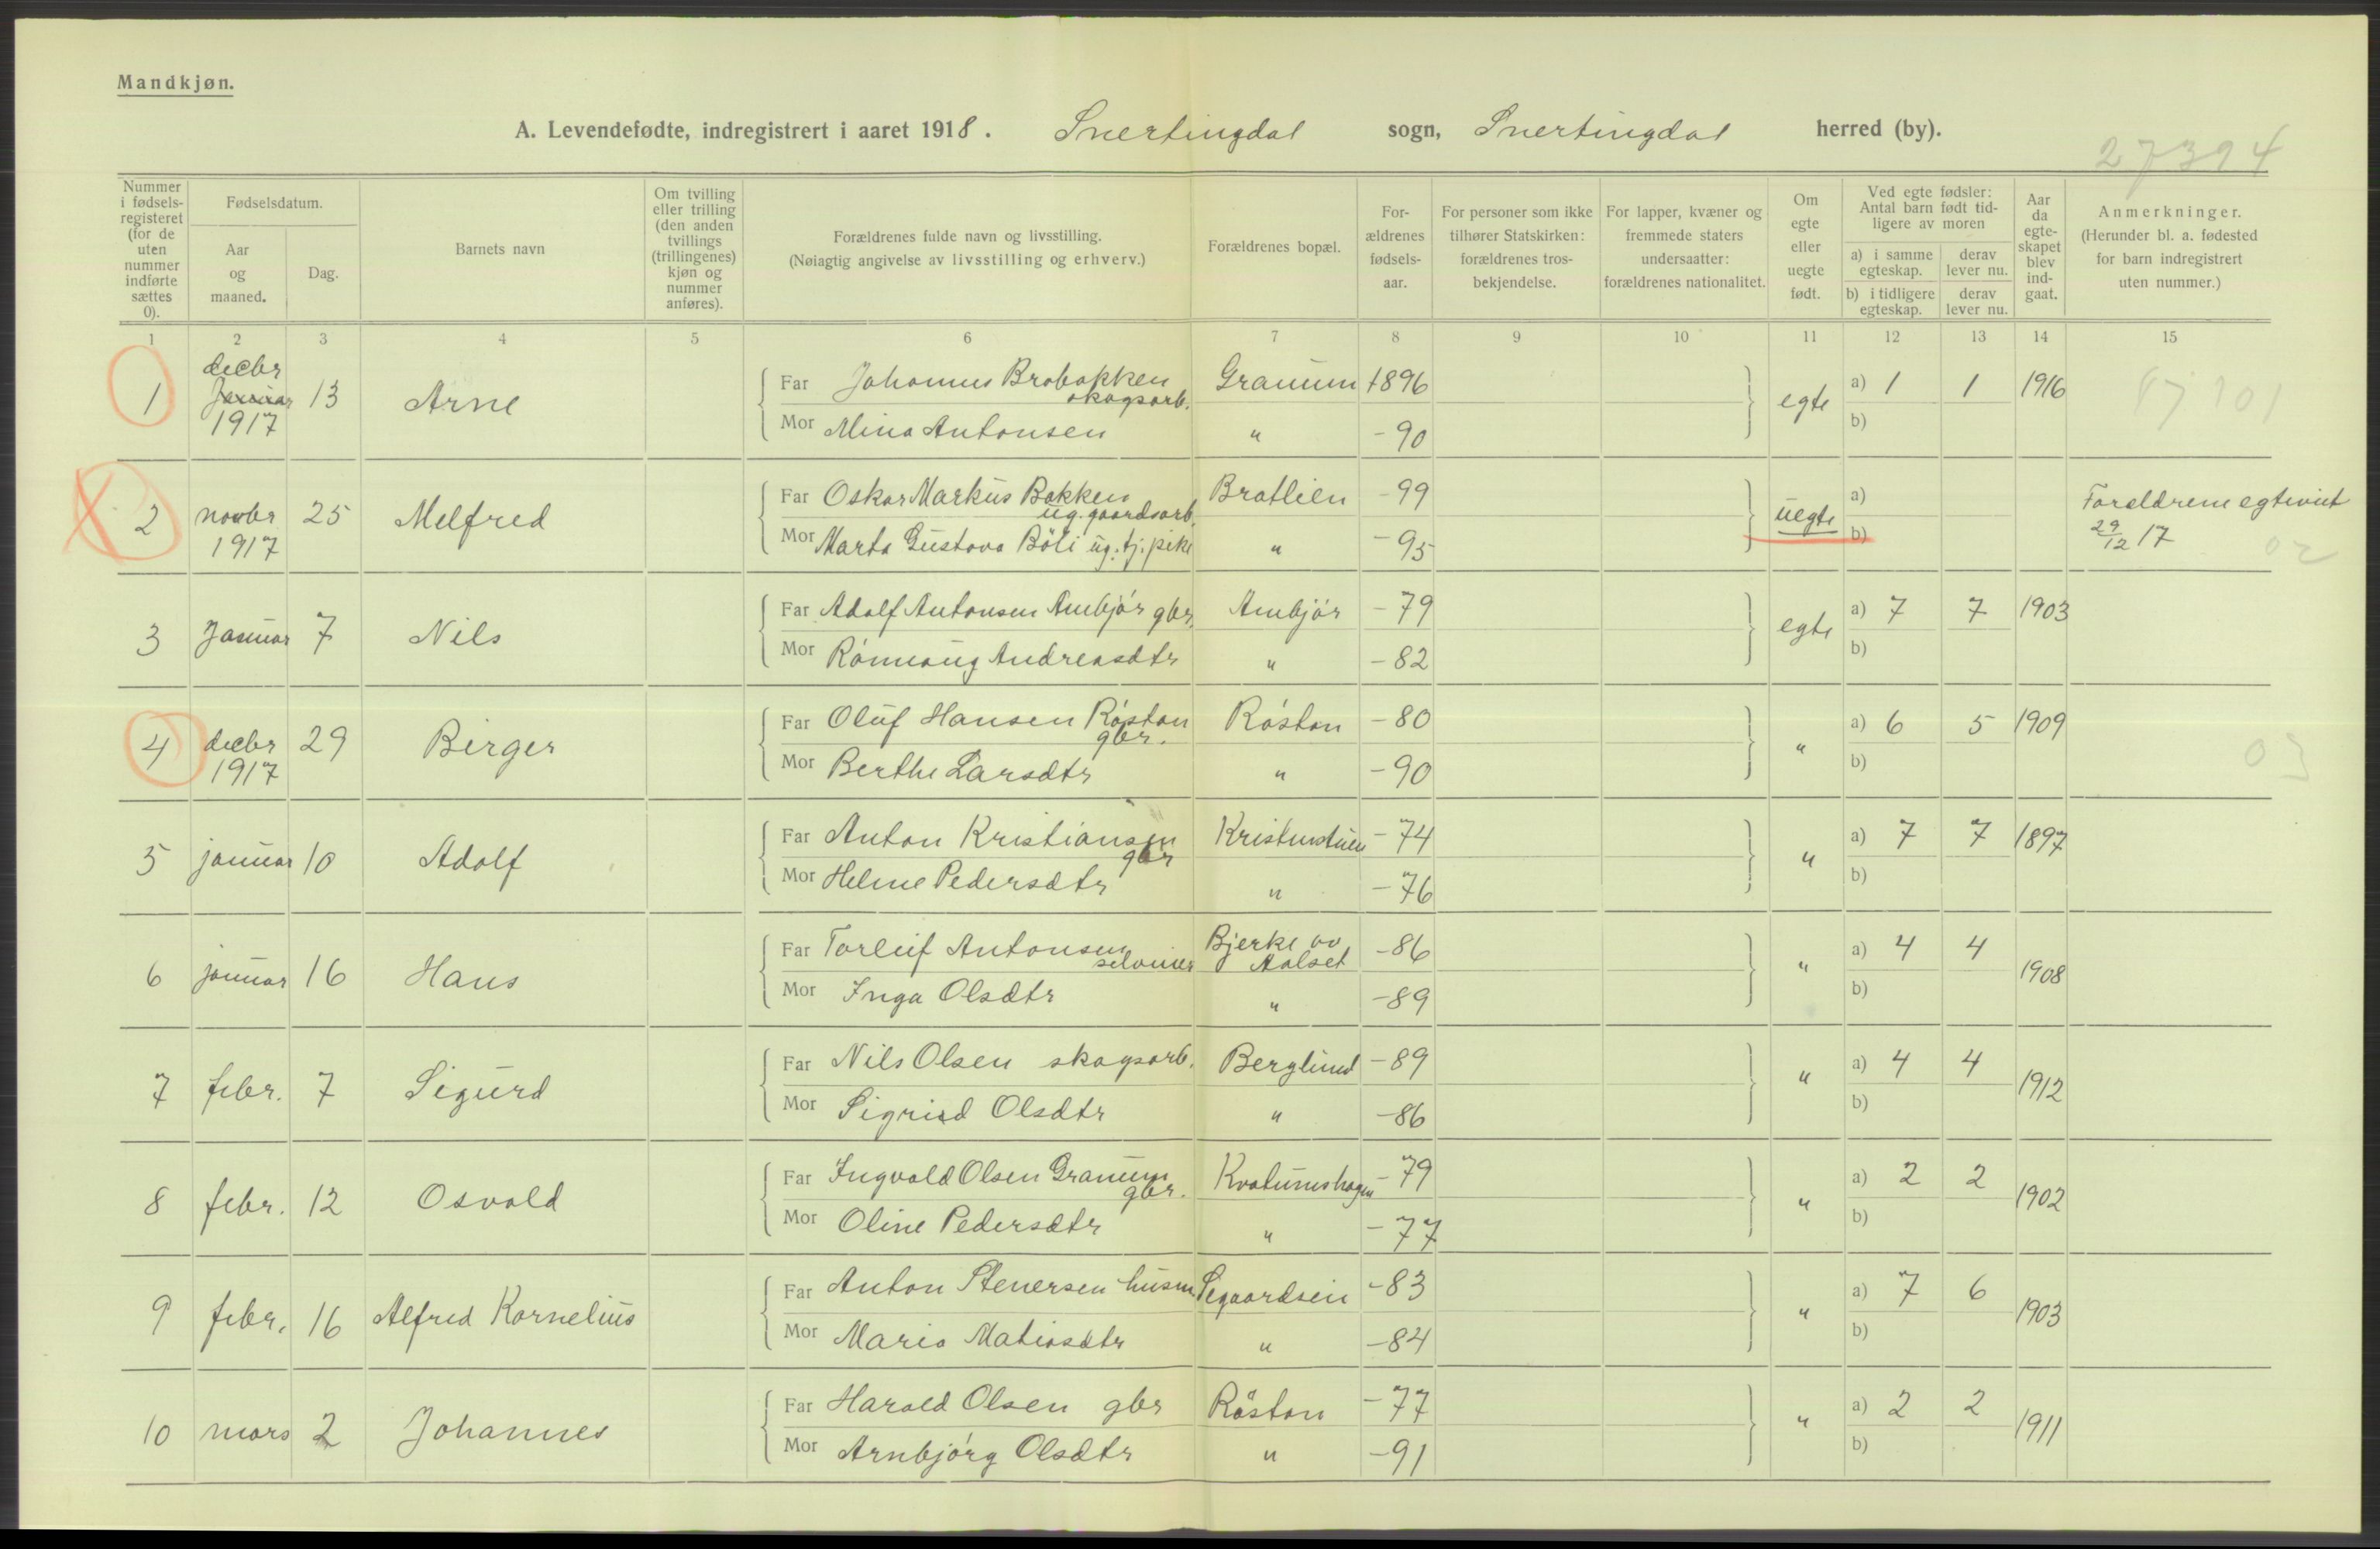 Mandkjøn.
A. Levendefødte, indregistrert i aaret 1918. Snertingdal sogn, Snertingdal herred (by).
27394
Nummer i fødsels-registeret (for de uten nummer indførte sættes 0).
Fødselsdatum.
Aar og maaned.
Dag.
Barnets navn
Om tvilling eller trilling (den anden tvillings (trillingenes) kjøn og nummer anføres).
Forældrenes fulde navn og livsstilling.
(Nøiagtig angivelse av livsstilling og erhverv.)
Forældrenes bopæl.
For-ældrenes fødsels-aar.
For personer som ikke tilhører Statskirken: forældrenes tros-bekjendelse.
For lapper, kvæner og fremmede staters undersaatter: forældrenes nationalitet.
Om egte eller uegte født.
Ved egte fødsler: Antal barn født tid-ligere av moren
a) i samme egteskap. derav lever nu.
b) i tidligere egteskap. derav lever nu.
Aar da egte-skapet blev ind-gaat.
Anmerkninger.
(Herunder bl. a. fødested for barn indregistrert uten nummer.)
1 2 3 4 5 6 7 8 9 10 11 12 13 14 15
1 decbr Januar 1917 13 Arne
Far Johannes Brobakken skogsarb. Granum 1896 egte a) 1 1 1916
Mor Mina Antonsen " -90 b)
2 novbr 1917 25 Melfred
Far Oskar Markus Bakken ug. gaardsarb. Bratlien -99 uegte a) Foreldrene egteviet 29/12 17
Mor Marta Gustava Böli ug. tj. pike " -95 b) 02
3 Januar 7 Nils
Far Adolf Antonsen Ambjör gbr. Ambjör -79 egte a) 7 7 1903
Mor Rönnaug Andreasdtr " -82 b)
4 decbr 1917 29 Birger
Far Oluf Hansen Röstan gbr. Röstan -80 " a) 6 5 1909
Mor Berthe Larsdtr " -90 b) 03
5 januar 10 Adolf
Far Anton Kristiansen gbr -74 " a) 7 7 1897
Mor Helene Pedersdtr " -76 b)
6 januar 16 Hans
Far Torleif Antonsen Bjerke av Aalset -86 " a) 4 4 1908
Mor Inga Olsdtr " -89 b)
7 febr. 7 Sigurd
Far Nils Olsen skogsarb. Berglund -89 " a) 4 4 1912
Mor Sigrid Olsdtr " -86 b)
8 febr. 12 Osvald
Far Ingvald Olsen Granum gbr. Kvatumshagen -79 " a) 2 2 1902
Mor Oline Pedersdtr " -77 b)
9 febr. 16 Alfred Kornelius
Far Anton Stenersen husm. Segaardseie -83 " a) 7 6 1903
Mor Maria Matiasdtr " -84 b)
10 mars 2 Johannes
Far Harald Olsen gbr Röstan -77 " a) 2 2 1911
Mor Arnbjörg Olsdtr " -91 b)